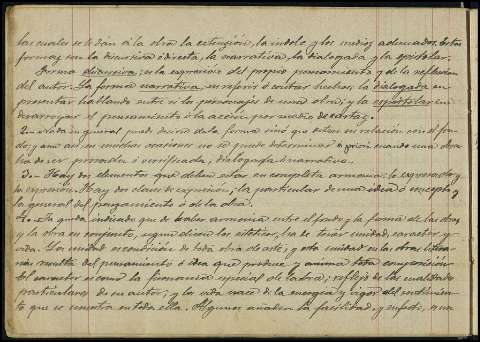 las cuales se le dán á la obra la extensión, la indole y los medios adecuados. Estas
formas son la discursiva ó directa, la narrativa, la dialogada y la epistolar.
Forma discursiva, es la expresion del propio pensamiento y de la reflexion
del autor. La forma narrativa, en referir ó contar hechos; la dialogada en
presentar hablando entre sí los personajes de una obra; y la epistolar en
desarroyar el pensamiento ó la acción por medio de cartas.
2.- en general puede decirse de la forma sino que debe estar en relación con el fon-
do, y aun así en muchas ocasiones no se puede determinar a priori cuando una obra
ha de ser prosaica ó versificada, dialogada ó narrativa.
3.- Hay dos elementos que deben estar en completa armonia: lo expresado y
la expresion. Hay dos clases de expresion; la particular de una idea ó concepto y
la general del pensamiento ó de la obra.
4.- Ya queda indicado que debe haber armonia entre el fondo y la forma de las obras
y la obra en conjunto, segun dicen los estéticos, ha de tener unidad, caracter y
vida. La unidad es condición de toda obra de arte; y esta unidad en las obras litera-
rias resulta del pensamiento ó idea que produce y anima toda composición
El caracter es como la fisonomia especial de la obra; reflejo de las cualidades
particulares de su autor; y la vida nace de la energia y vigor del sentimien-
to que se muestra en toda ella. Algunos añaden la facilidad, y esta es una